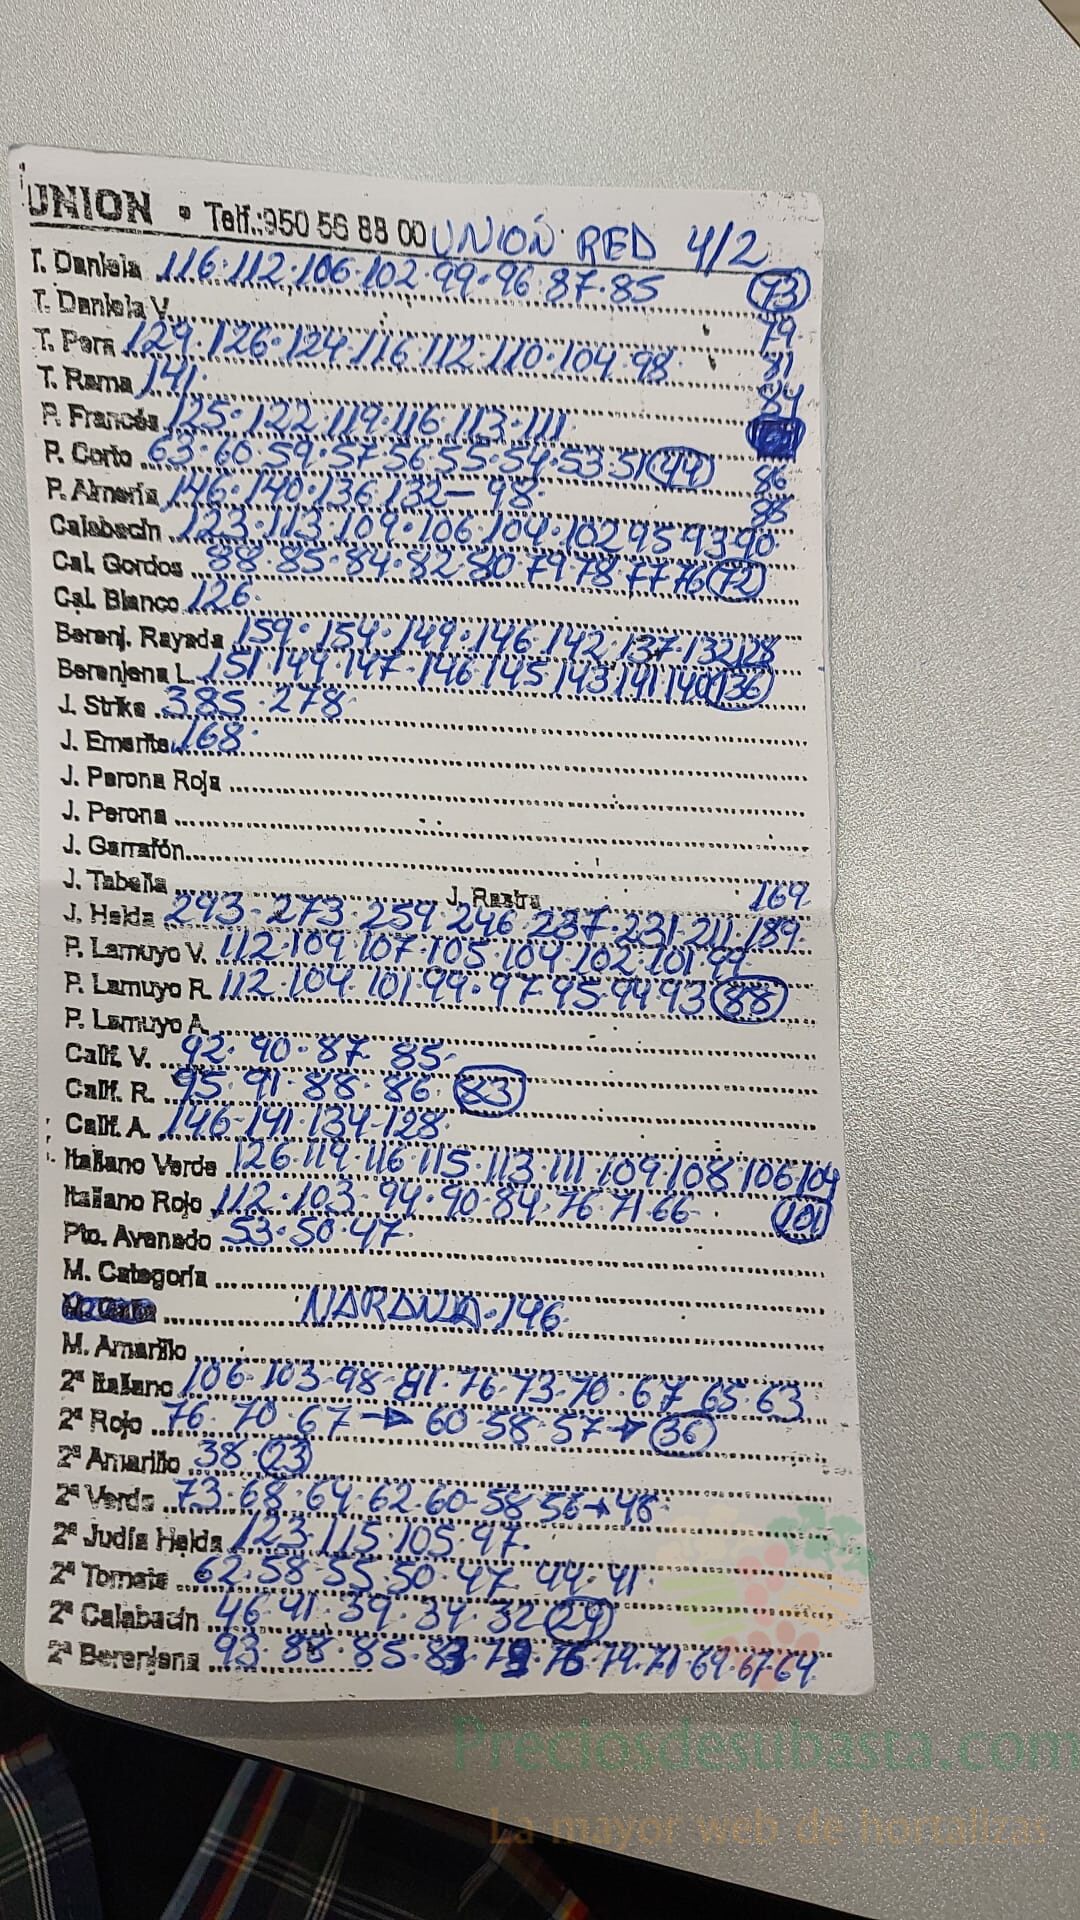 UNION • Telf.:950 56 88 00 UNIÓN RED 4/2
T. Daniela 116·112·106·102·99·96·87·85 93
T. Daniela V. 79
T. Pera 129·126·124·116·112·110·104·98 81
T. Rama 141 84
P. Francés 125·122·119·116·113·111
P. Corto 63·60·59·57·56·55·54·53·51 49 86
P. Almería 146·140·136·132-98 88
Calabacín 123·113·109·106·104·102 95 93 90
Cal. Gordos 88·85·84·82·80·79 78 77 76 72
Cal. Blanco 126
Berenj. Rayada 159·154·149·146·142·137·132 128
Berenjena L. 151 149·147·146 145 143 141 140 136
J. Strike 385·278
J. Emerite 168
J. Perona Roja
J. Perona
J. Garrafón
J. Tabella J. Rastra 169
J. Helda 293·273·259·246·237·231·211·189
P. Lamuyo V. 112·109·107·105·104·102·101·99
P. Lamuyo R. 112·104·101·99·97·95·94 93 88
P. Lamuyo A.
Calif. V. 92·90·87·85
Calif. R. 95·91·88·86 83
Calif. A. 146·141·134·128
Italiano Verde 126·119·116·115·113·111·109·108·106·104
Italiano Rojo 112·103·94·90·84·76·71·66 101
Pto. Avanado 53·50·47
M. Categoría
NARANJA·146
M. Amarillo
2ª Italiano 106·103·98·81·76·73·70·67 65·63
2ª Rojo 76·70·67→60·58·57→36
2ª Amarillo 38·23
2ª Verde 73·68·64·62·60·58 56→48
2ª Judía Helda 123·115·105·97
2ª Tomate 62·58·55·50·47·44·41
2ª Calabacín 46·41·39·34·32 29
2ª Berenjena 93·88·85·83 74·71·69·67·64
Preciosdesubasta.com
La mayor web de hortalizas